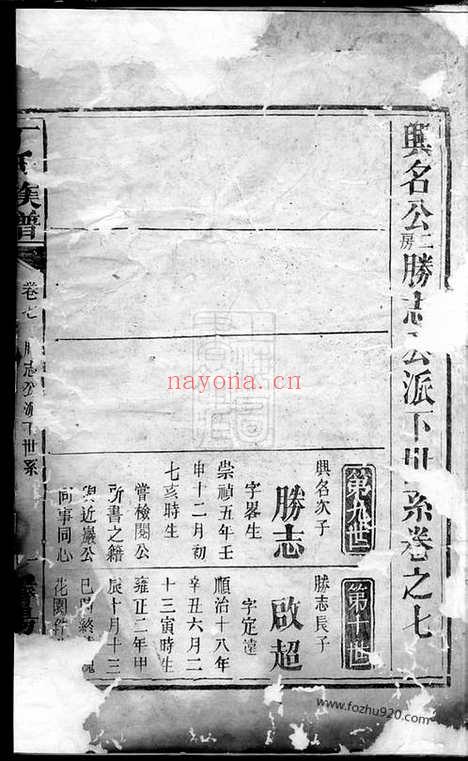 興名公二房勝志公派下世系卷之七
第九世
興名次子
勝志
字畧生
崇禎五年壬
申十二月初
七亥時生
嘗檢閱公
所書之籍
與近巖公
同事同心
第十世
勝志長子
啟超
字定遠
順治十八年
辛丑六月二
十三寅時生
雍正二年甲
辰十月十三
巳時終
花園
族譜
卷七
勝志公派下世系
nayona.cn
www.fozhu920.com